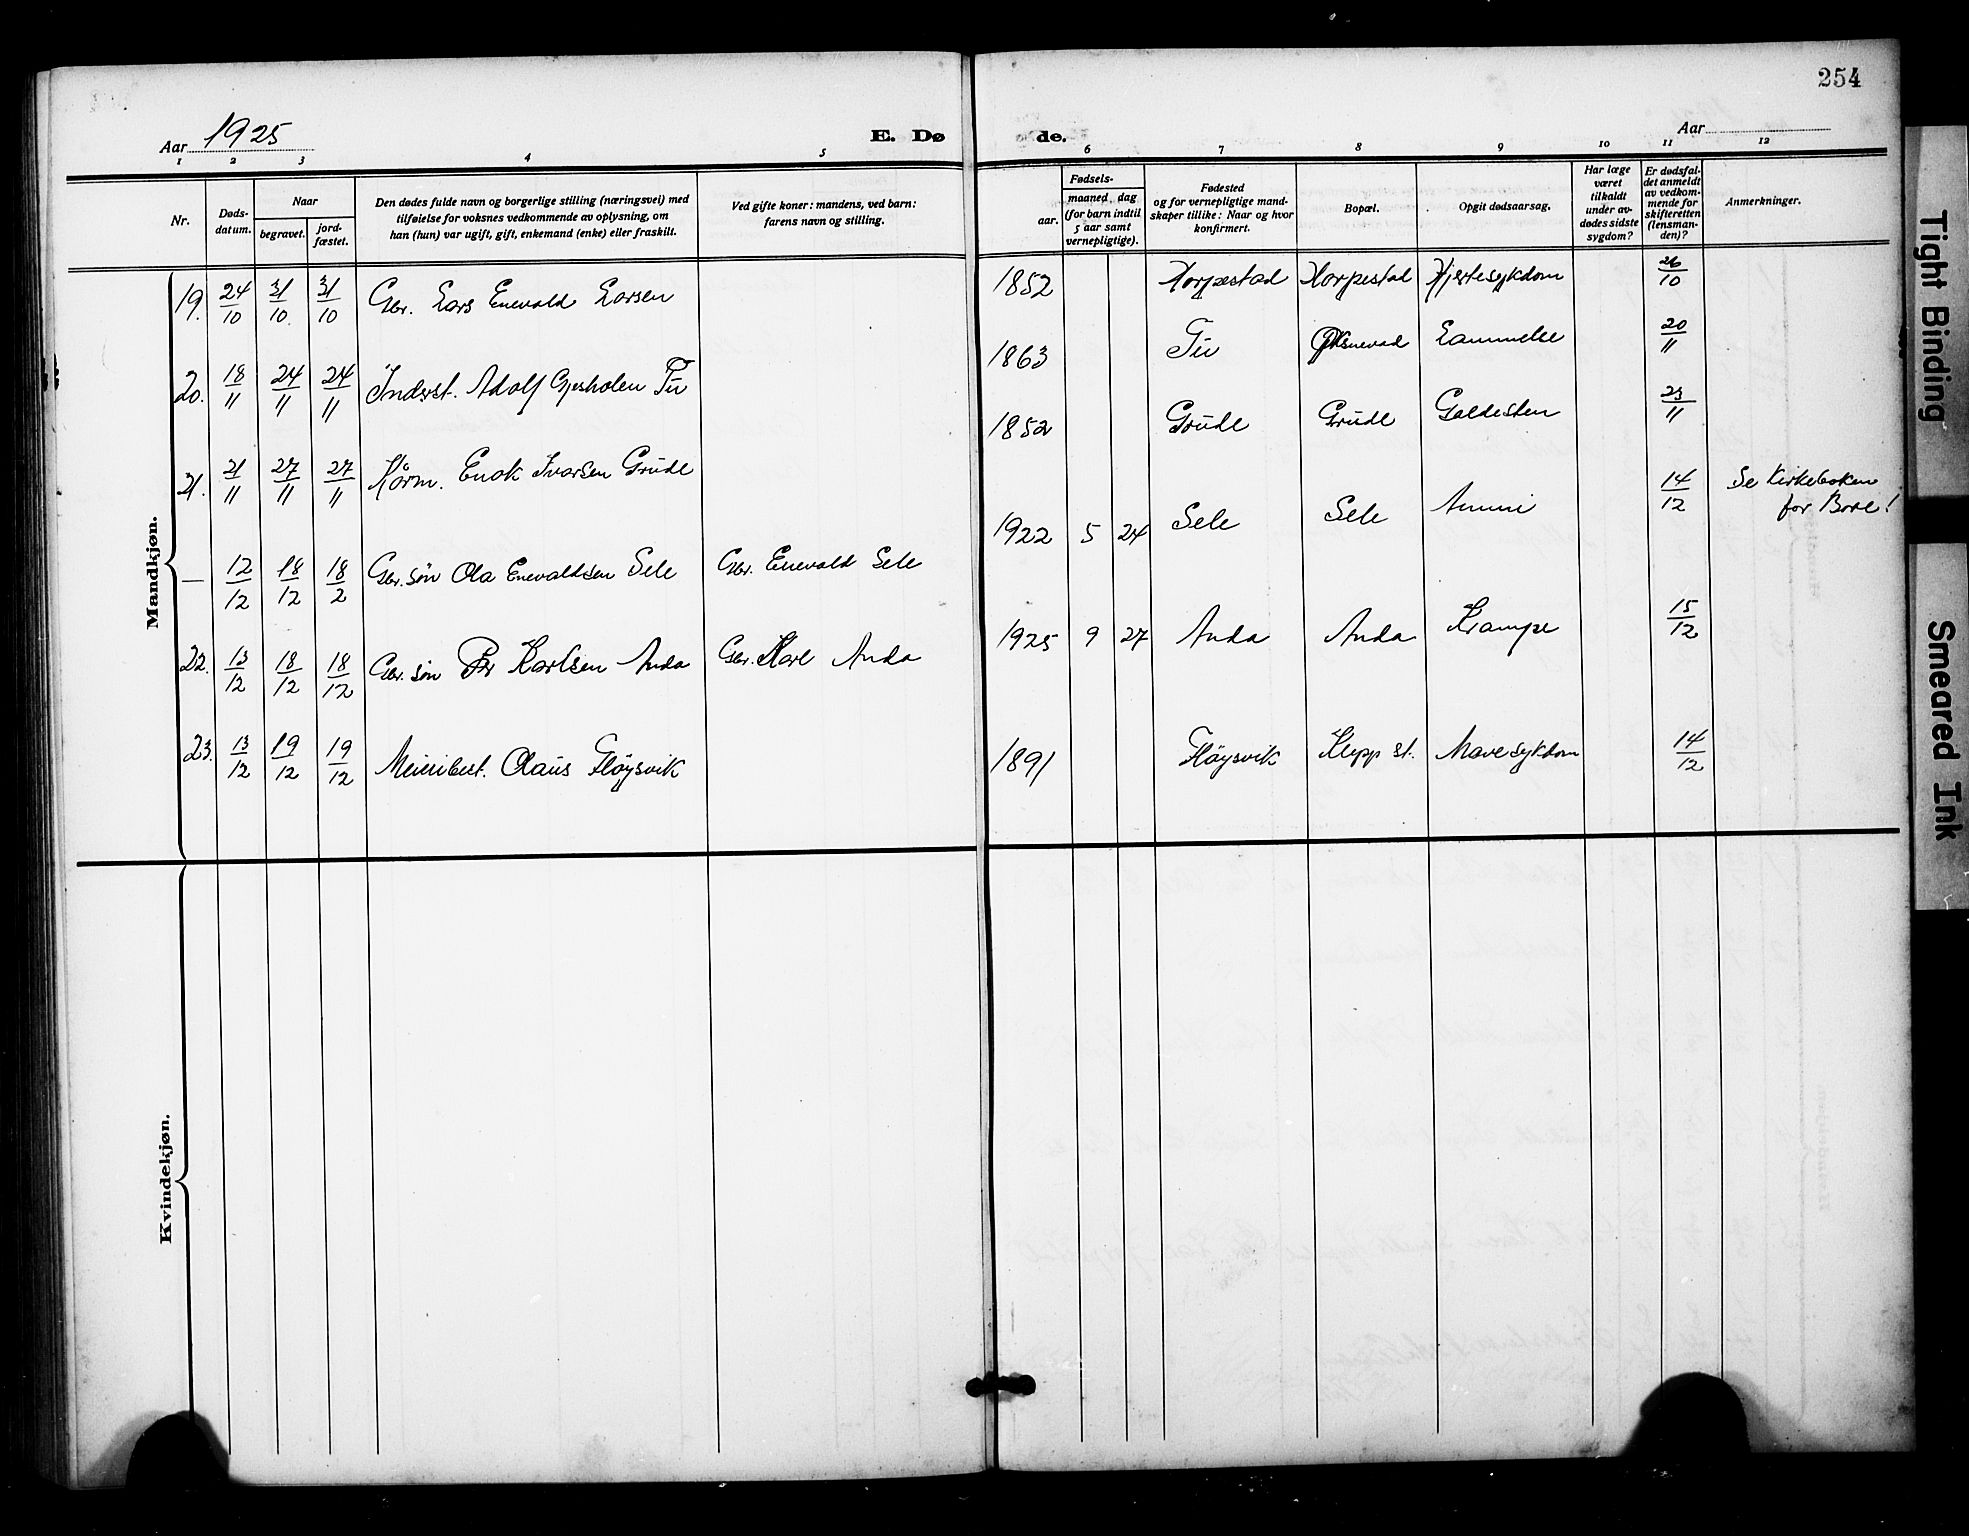 254
Aar 1925
E. Dø
de.
Aar
1 2 3 4 5 6 7 8 9 10 11 12
Nr.
Døds-
datum.
Naar
begravet.
jord-
fæstet.
Den dødes fulde navn og borgerlige stilling (næringsvei) med
tilføielse for voksnes vedkommende av oplysning, om
han (hun) var ugift, gift, enkemand (enke) eller fraskilt.
Ved gifte koner: mandens, ved barn:
farens navn og stilling.
Fødsels-
aar.
maaned. dag
(for barn indtil
5 aar samt
vernepligtige).
Fødested
og for vernepligtige mand-
skaper tillike: Naar og hvor
konfirmert.
Bopæl.
Opgit dødsaarsag.
Har læge
været
tilkaldt
under av-
dødes sidste
sygdom?
Er dødsfal-
det anmeldt
av vedkom-
mende for
skifteretten
(lensman-
den)?
Anmerkninger.
Mandkjøn.
19. 24/10 31/10 31/10 Gbr. Lars Enevald Larsen 1852 Horpestad Horpestad Hjertesykdom 26/10
20. 18/11 24/11 24/11 Inderst. Adolf Gjesholen Tu 1863 Tu Lammelse 20/11
21. 21/11 27/11 27/11 Kårm. Enok Ivarsen Grude 1852 Grude Grude Galdesten 23/11
— 12/12 18/12 18/2 Gbr. søn Ola Enevaldsen Sele Gbr. Enevald Sele 1922 5 24 Sele Sele 14/12 Se Kirkeboken
for Bore!
22. 13/12 18/12 18/12 Gbr. søn Per Karlsen Anda Gbr. Karl Anda 1925 9 27 Anda Anda Krampe 15/12
23. 13/12 19/12 19/12 Meieribest. Olaus Fløysvik 1891 Fløysvik Klepp st. Mavesykdom 14/12
Kvindekjøn.
Tight Binding
Smeared Ink